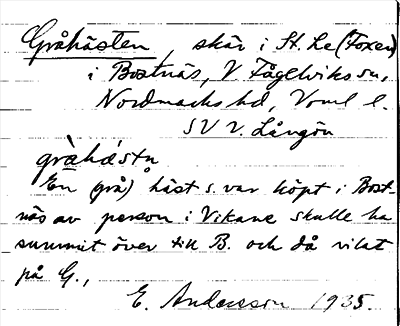 Gråhästen, skär i St. Le (Foxen)
i Bostnäs, V Fågelviks sn,
Nordmarks hd, Vrml l.
SV V. Långön
gràhǽstn
En (grå) häst s. var köpt i Bost-
näs av person i Vikane skulle ha
summit över till B. och då vilat
på G.,
E. Andersson 1935.